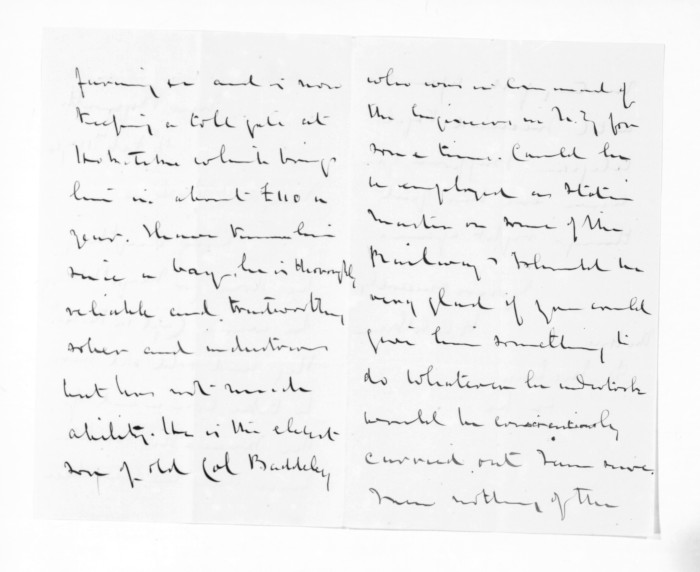 farming in and is now
keeping a toll gate at
which brings
him in about £110 a
year. I have known him
since a boy, he is thoroughly
reliable and trustworthy
sober and industrious
but has not much
ability. He is the eldest
son of old Col Baddeley
who was in Command of
the Engineers in N.Z. for
some time. Could he
be employed as Station
Master on some of the
Railways I should be
very glad if you could
give him something to
do Whatever he undertook
would be conscientiously
carried out I am sure.
nothing of the